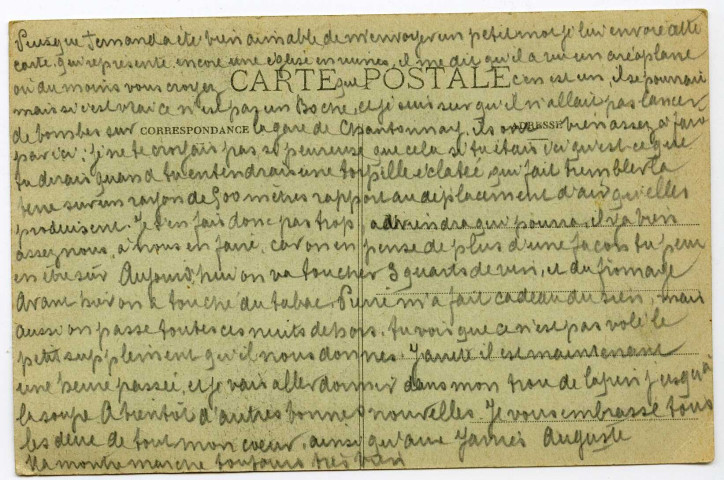 Puisque Fernand a été bien aimable de m'envoyer un petit mot je lui envoie cette
carte qui represente encore une église en ruines, il me dit qu'il a vu un aréoplane
ou du moins vous croyez que c'en est un, il se pourrait
CARTE POSTALE
mais si c'est vrai ce n'est pas un Boche, et je suis sur qu'il n'allait pas lancer
de bombes sur la gare de Chantonnay, ils ont bien assez à faire
CORRESPONDANCE ADRESSE
par ici. Je ne te croyais pas si peureuse que cela si tu étais ici qu'est-ce que
tu dirais quand tu entendrais une torpille éclatée qui fait trembler la
terre sur un rayon de 500 mètres rapport au déplacement d'air qu'elles
produisent. Je t'en fais donc pas trop, adviendra qui pourra, il y a bien
assez nous, à nous en faire, car on en pense de plus d'une façons tu peux
en être sur Aujourd'hui on va toucher 3 quarts de vin, et du fromage
Avant hier on a touché du tabac, Pierre m'a fait cadeau du sien, mais
aussi on passe toutes ces nuits dehors, tu vois que ce n'est pas volé le
petit supplement qu'il nous donnes. il est maintenant
une heure passée, et je vais aller dormir dans mon trou de lapin jusqu'à
la soupe A bientôt d'autres bonnes nouvelles. Je vous embrasse tous
les deux de tout mon coeur, ainsi Auguste
Ma montre marche toujours très bien